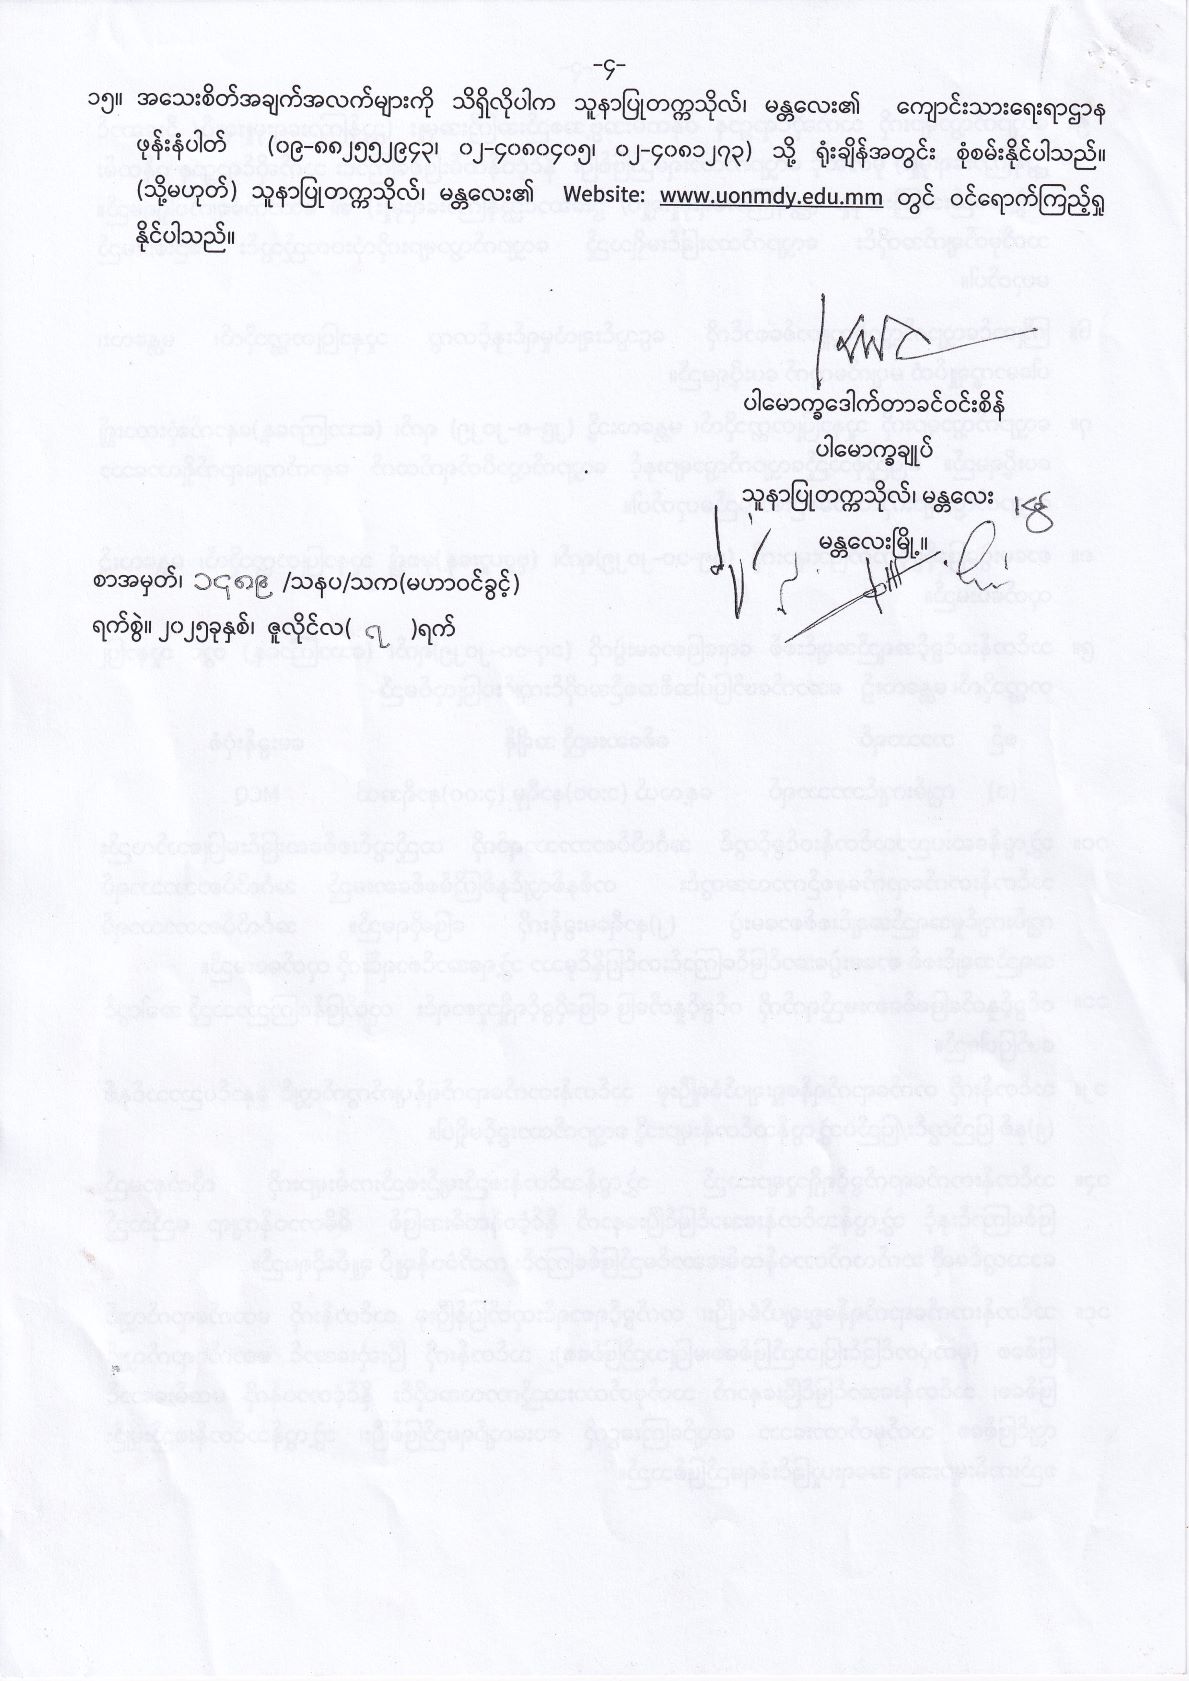 -၄-
၁၅။ အသေးစိတ်အချက်အလက်များကို သိရှိလိုပါက သူနာပြုတက္ကသိုလ်၊ မန္တလေး၏ ကျောင်းသားရေးရာဌာန
ဖုန်းနံပါတ် (၀၉-၈၈၂၅၅၂၉၄၃၊ ၀၂-၄၀၈၀၄၀၅၊ ၀၂-၄၀၈၁၂၇၃) သို့ ရုံးချိန်အတွင်း စုံစမ်းနိုင်ပါသည်။
(သို့မဟုတ်) သူနာပြုတက္ကသိုလ်၊ မန္တလေး၏ Website: www.uonmdy.edu.mm တွင် ဝင်ရောက်ကြည့်ရှု
နိုင်ပါသည်။
ပါမောက္ခဒေါက်တာခင်ဝင်းစိန်
ပါမောက္ခချုပ်
သူနာပြုတက္ကသိုလ်၊ မန္တလေး
မန္တလေးမြို့။
စာအမှတ်၊ ၁၄၈၉ /သနပ/သက(မဟာဝင်ခွင့်)
ရက်စွဲ။ ၂၀၂၅ခုနှစ်၊ ဇူလိုင်လ( ၇ )ရက်